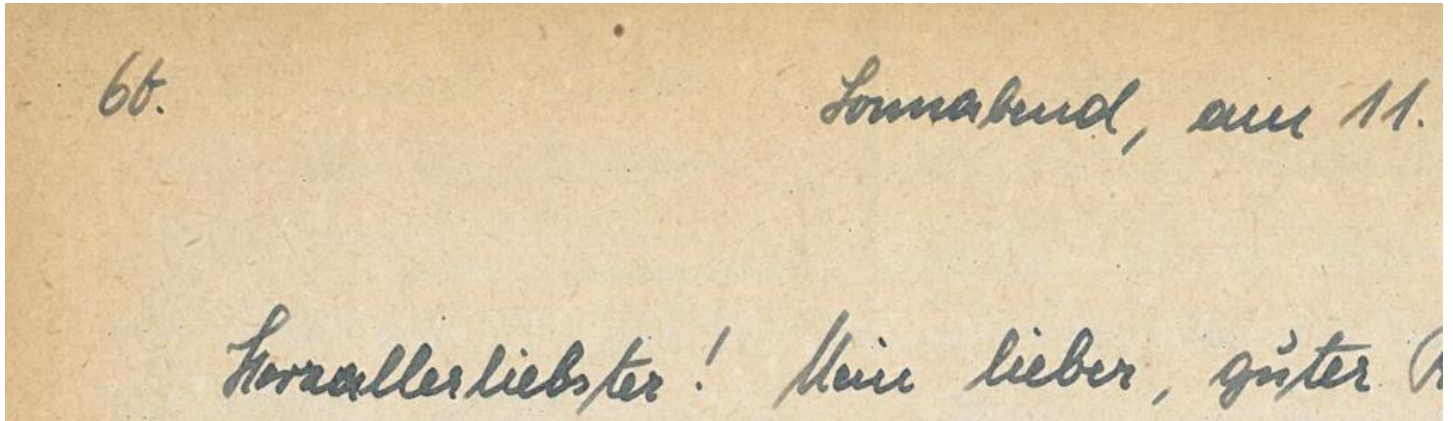 66.
Sonnabend, am 11.
Herzallerliebster! Mein lieber, guter